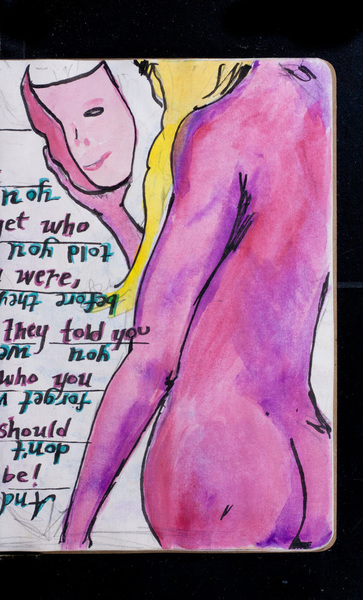 get who
were,
they told you
who you
should
be!
And
don't
forget
you we
before they
told you
you